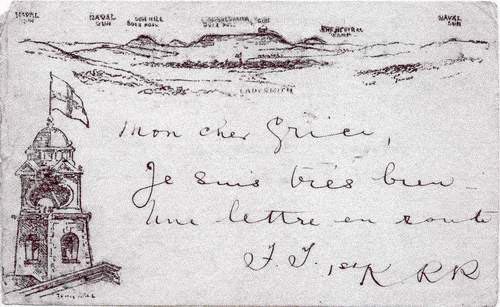 NAVAL GUN
NAVAL GUN
GUN HILL
GUN
NEUTRAL CAMP
NAVAL GUN
LADYSMITH
Mon cher Grice,
Je suis très bien
Une lettre en route
F. F. 1st K RR